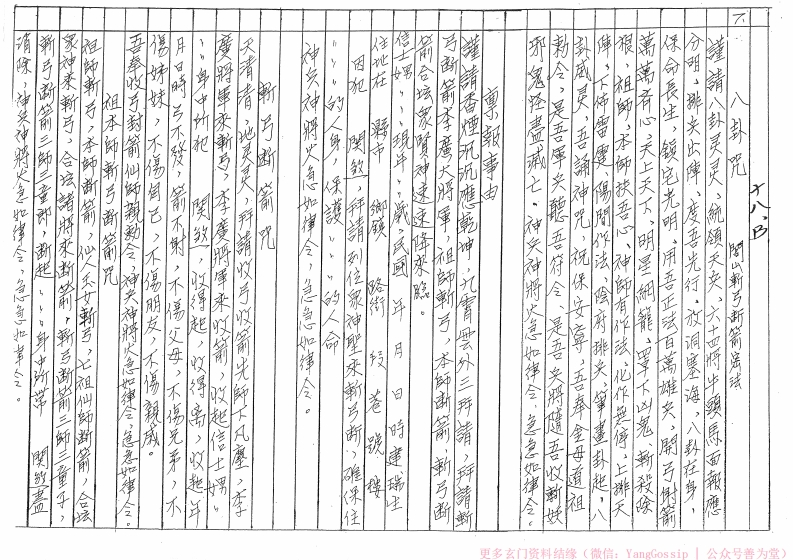 十八、B
閭山斬弓斷箭密法
八卦咒
謹請八卦灵灵，統領天兵，六十四將牛頭馬面報應
分明，排兵出陣，度吾先行，放洞塞海，八卦在身，
保命長生，鎮宅光明，用吾正法百萬雄兵，開弓射箭
萬萬有心，天上天下，明星綱籠，罩下凶鬼，斬殺除
根，祖師，本師扶吾心，神師有作法，化作無停，上排天
陣，下佈雷霆，陽間作法，陰府排兵，筆畫卦起，八
卦威灵，吾誦神咒，祝保安寧，吾奉金母道祖
勅令，是吾軍兵聽吾符令，是吾兵將隨吾收斬妖
邪鬼怪盡滅亡。神兵神將火急如律令，急急如律令。
稟報事由
謹請香煙沉沉應乾坤，九霄雲外三拜請，拜請斬
弓斷箭李廣大將軍，祖師斬弓，本師斷箭，斬弓斷
箭合坛眾賢神速速降來臨。
信士娚、、、現年、歲，民國 年 月 日 時建瑞生
住地在 縣市 鄉鎮 路街 段 巷 號 樓
因犯 関煞，拜請到位眾神聖來斬弓斷箭，確保住
、、、的人身，保護、、、的人命
神兵神將火急如律令，急急如律令。
斬弓斷箭咒
天清清，地灵灵，拜請收弓收箭先師下凡塵，李
廣將軍來斬弓，李廣將軍來收箭，收起信士娚、
、、身中所犯 関煞，收得起，收得离，收起年
月日時，弓不發，箭不射，不傷父母，不傷兄弟，不
傷姊妹，不傷自己，不傷朋友，不傷親戚。
吾奉收弓封箭仙師親勅令，神兵神將火急如律令，急急如律令。
祖本師斬弓斷箭咒
祖師斬弓，本師斷箭，仙人玉女斬弓，七祖仙師斷箭，合坛
眾神來斬弓，合坛諸將來斷箭，斬弓斷箭三師三童子，
斬弓斷箭三師三童郎，斷起、、、身中所帶 関煞盡
消除，神兵神將火急如律令，急急如律令。
更多玄门资料结缘（微信：YangGossip | 公众号善为堂）